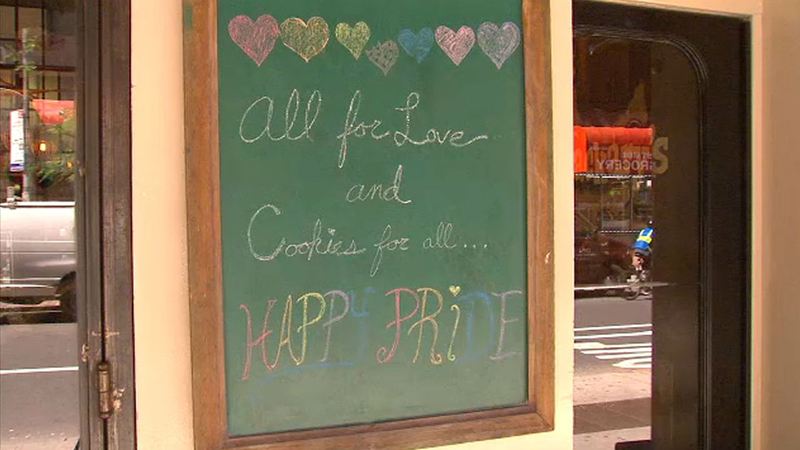 All for Love
and
Cookies for all...
HAPPY PRiDE
GROCERY